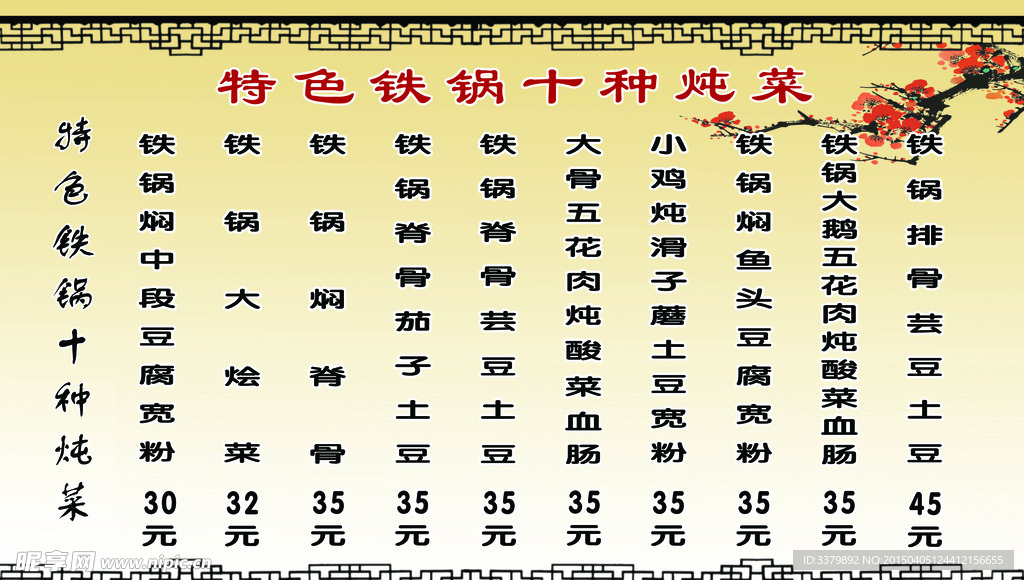 特色铁锅十种炖菜
特色铁锅十种炖菜
铁锅焖中段豆腐宽粉
30元
铁锅大烩菜
32元
铁锅焖脊骨
35元
铁锅脊骨茄子土豆
35元
铁锅脊骨芸豆土豆
35元
大骨五花肉炖酸菜血肠
35元
小鸡炖滑子蘑土豆宽粉
35元
铁锅焖鱼头豆腐宽粉
35元
铁锅大鹅五花肉炖酸菜血肠
35元
铁锅排骨芸豆土豆
45元
昵享网 www.nipic.cn
ID:3379892 NO:20150405124412156655